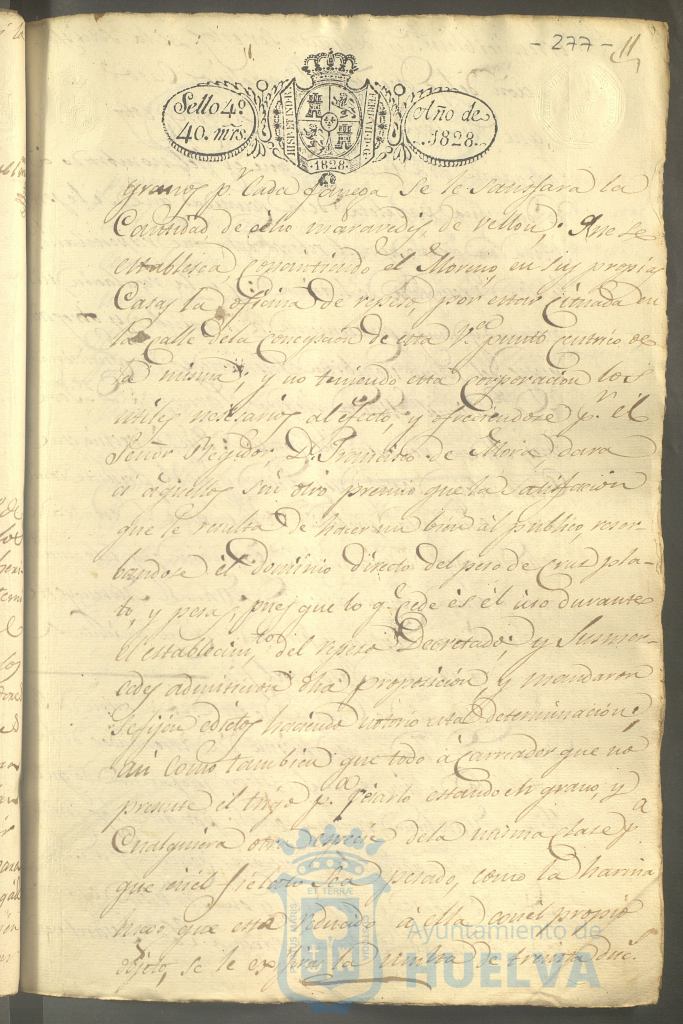 - 277 - 11
Sello 4º
40. mrs.
HISP. ET IND. R.
1828
Año de
1828.
granos pr. Cada fanega se le satisfara la
Cantidad de ocho maravedis de vellon; Que se
establesca consintiendo el Moreno, en sus propias
Casas la oficina de repeso, por estar cituada en
la calle dela Concepsion de esta Va. punto Centrico de
la misma; y no teniendo esta Corporacion los
utiles nesesarios al efecto, y ofreciendose pr. el
Señor Regidor, Dn. Francisco de Mora, dara
a aquellos sin otro premio que la satisfacion
que le resulta de hacer un bien al publico, reser-
bandose el Dominio directo del peso de Cruz, pla-
to, y pesas; pues que lo qe. cede es el uso durante
el establecimto. del repeso Decretado; y Susmer-
cedes admitieron dha proposicion, y mandaron
se fijen edictos haciendo notorio esta determinacion;
asi como tambien que todo acarriador que no
presente el trigo pa. pesarlo estando en grano, y
Cualquiera otra especie dela misma clase pa.
que en el sea pesado, como la harina
luego que esta reducido á ella con el propio
objeto, se le exijira la multa de treinta duc.s
ET TERRÆ
Ayuntamiento de
HUELVA